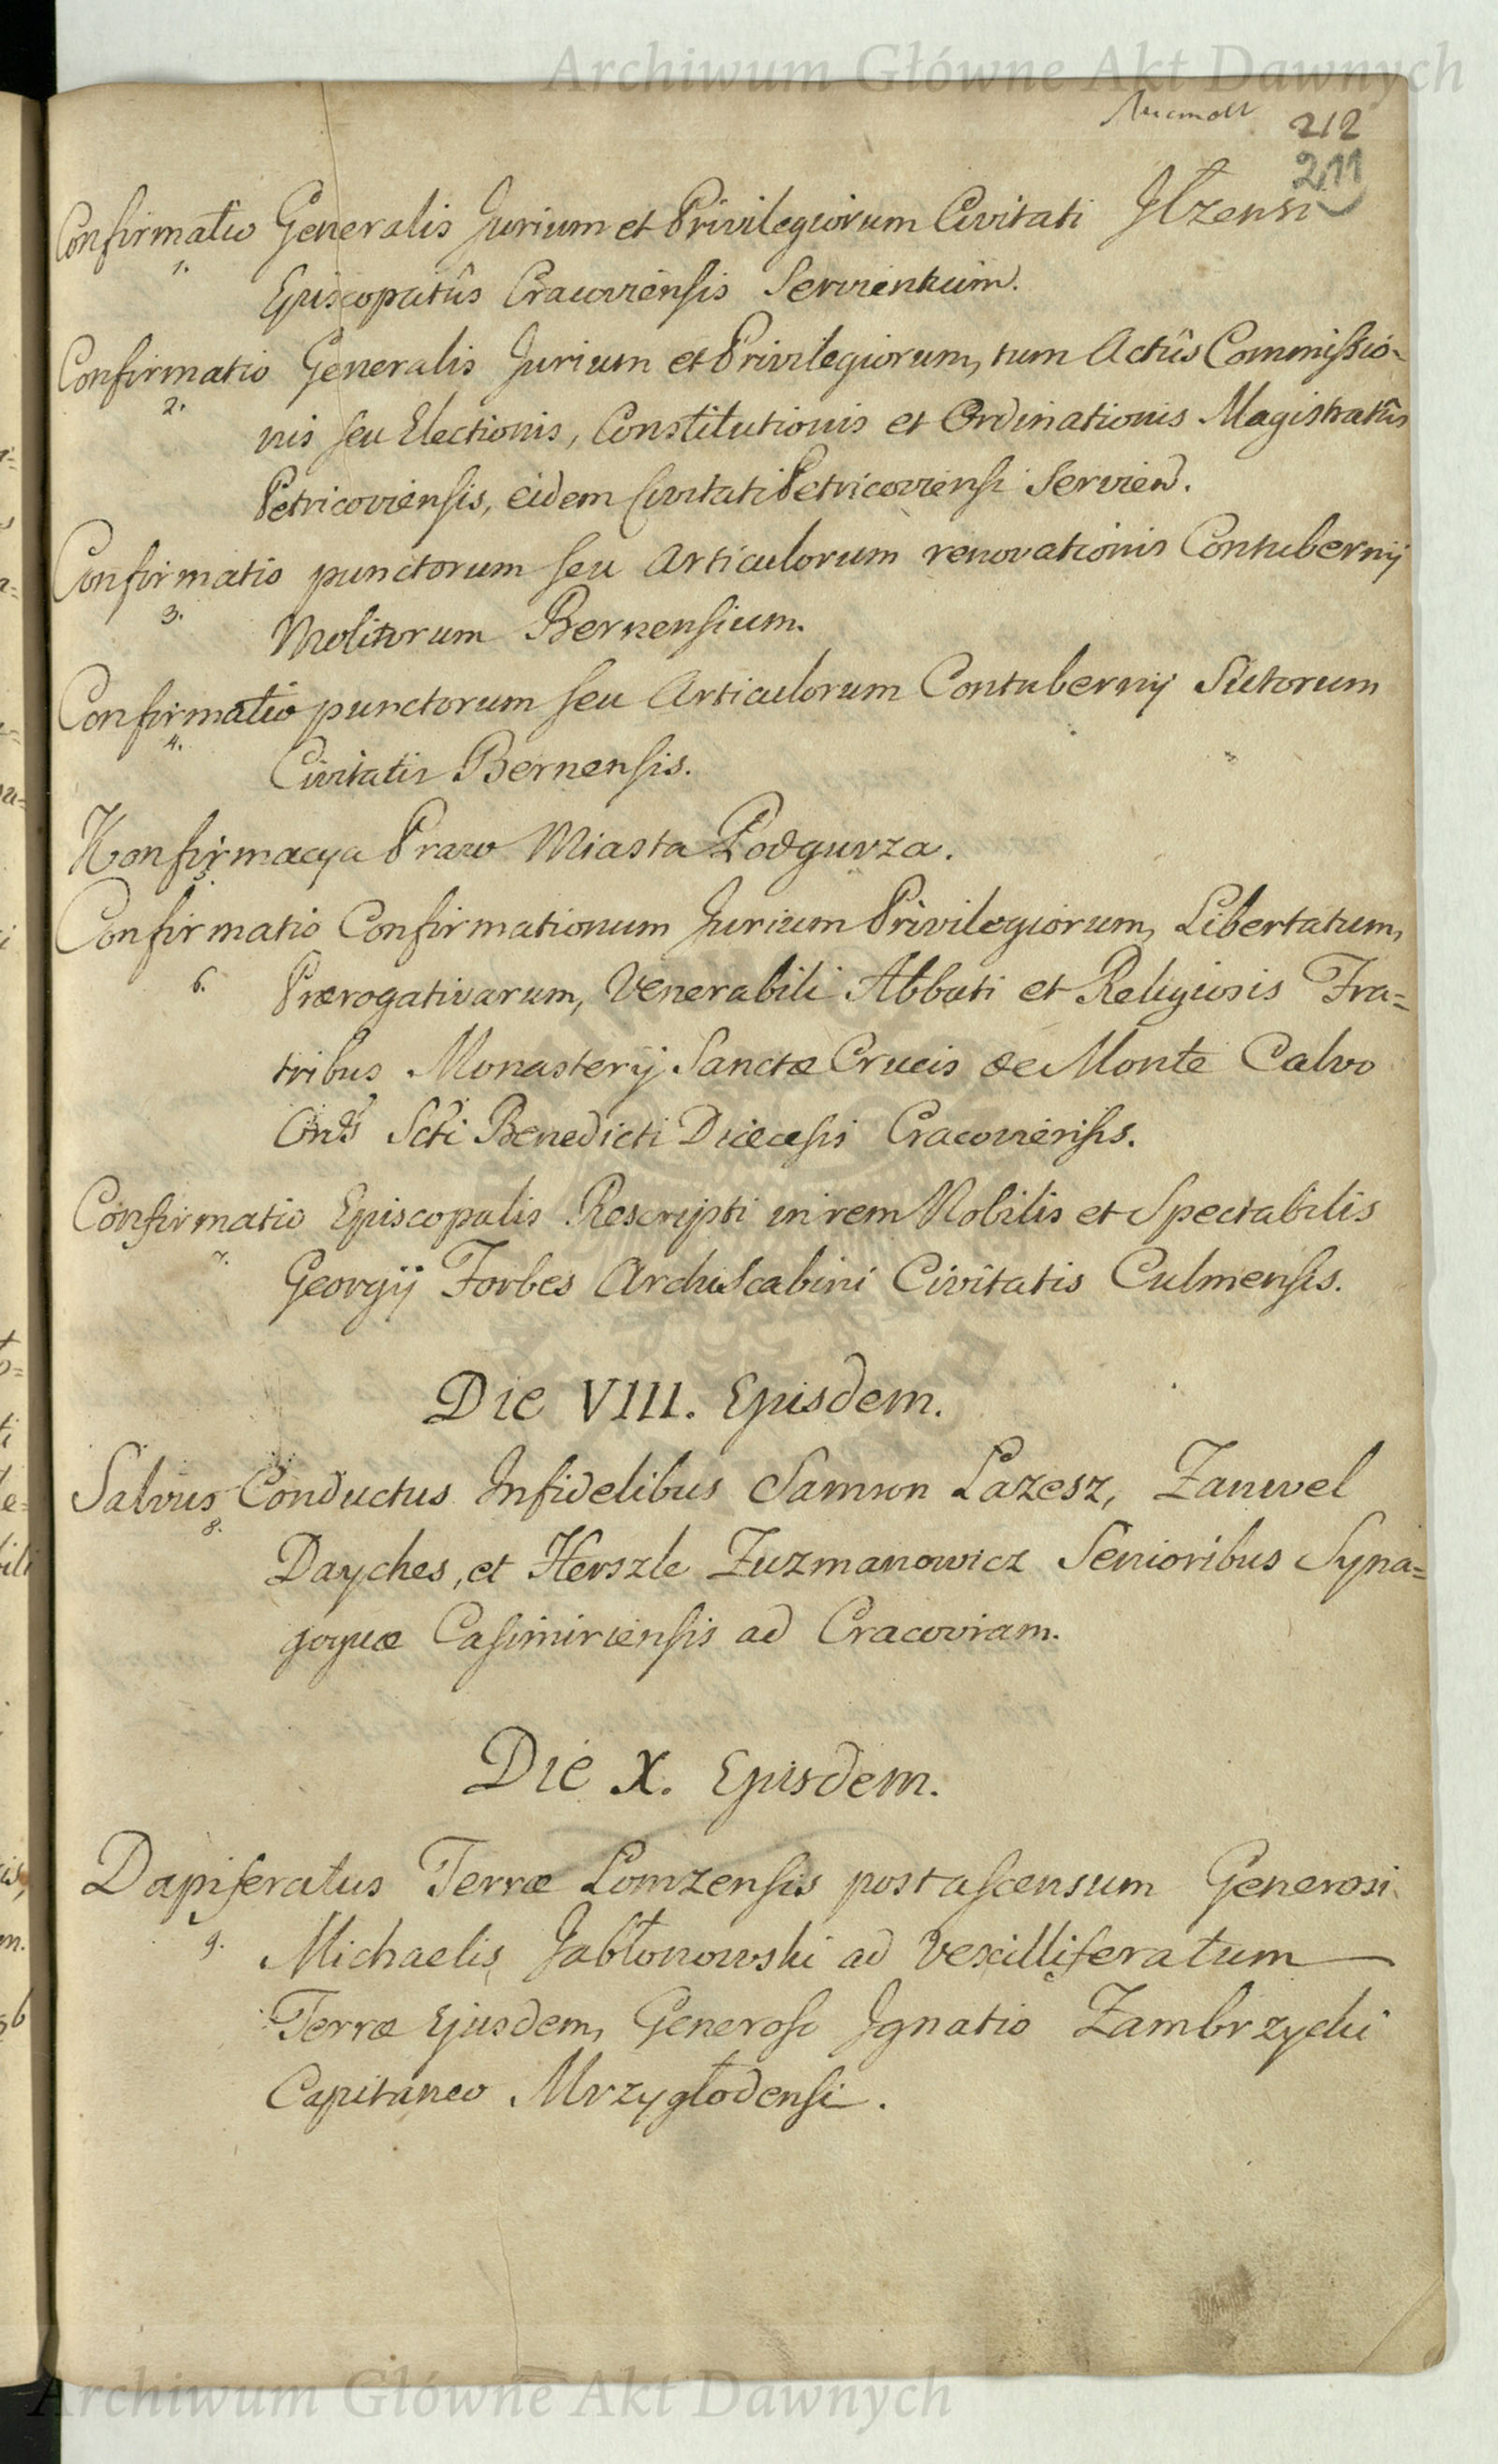 Archiwum Główne Akt Dawnych
212
211
Confirmatio Generalis Jurium et Privilegiorum Civitati Jłzensi
1.
Episcopatûs Cracoviensis Servientium.
Confirmatio Generalis Jurium et Privilegiorum, tum Actûs Commissio-
2.
nis seu Electionis, Constitutionis et Ordinationis Magistratûs
Petricoviensis, eidem Civitati Petricoviensi Servien.
Confirmatio punctorum seu Articulorum renovationis Contubernij
3.
Molitorum Bernensium.
Confirmatio punctorum seu Articulorum Contubernij Sutorum
4.
Civitatis Bernensis.
Konfirmacya Praw Miasta Podgurza.
5.
Confirmatio Confirmationum Jurium Privilegiorum, Libertatum,
6. Prærogativarum, Venerabili Abbati et Religiosis Fra=
tribus Monasterij Sanctæ Crucis de Monte Calvo
Ordis Scti Benedicti Diœcesis Cracoviensis.
Confirmatio Episcopalis Rescripti in rem Nobilis et Spectabilis
7. Georgij Forbes Archiscabini Civitatis Culmensis.
Die VIII. Ejusdem.
Salvus Conductus Infidelibus Samson Lazesz, Zanwel
8.
Dayches, et Herszle Zuzmanowicz Senioribus Syna=
gogæ Casimiriensis ad Cracoviam.
Die X. Ejusdem.
Dapiferatus Terræ Lomzensis post ascensum Generosi
9. Michaelis Jabłonowski ad Vexilliferatum
Terræ Ejusdem, Generoso Ignatio Zambrzycki
Capitaneo Mrzygłodensi.
Archiwum Główne Akt Dawnych